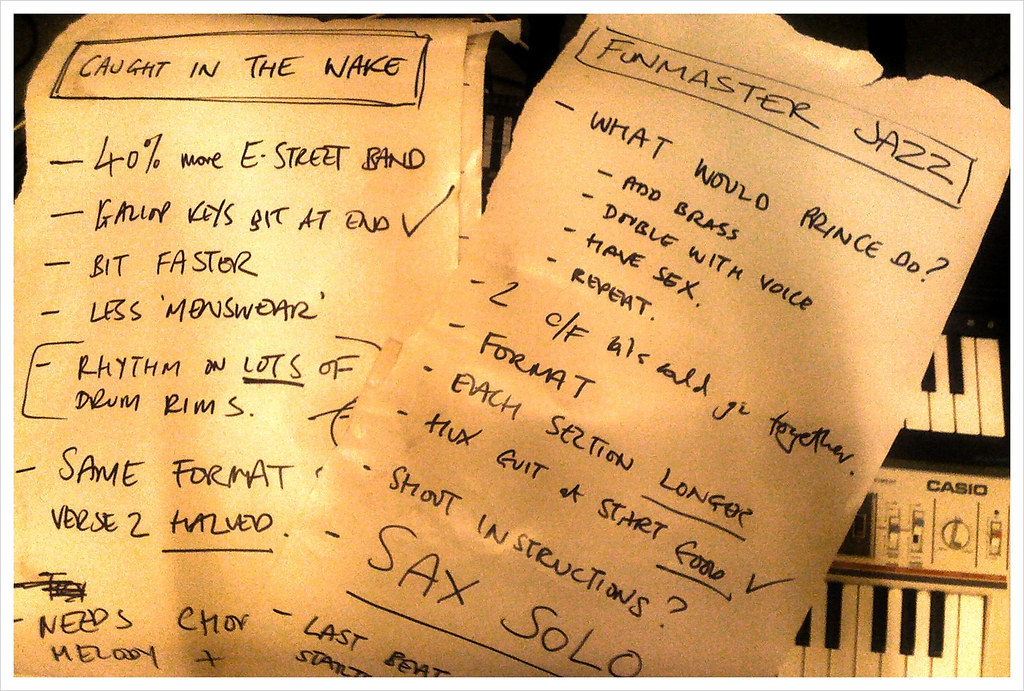 CAUGHT IN THE WAKE
- 40% more E-STREET BAND
- GALLOP KEYS BIT AT END ✓
- BIT FASTER
- LESS 'MENSWEAR'
- RHYTHM ON LOTS OF
DRUM RIMS.
- SAME FORMAT
VERSE 2 HALVED.
- NEEDS CHOR
MELODY +
FUNMASTER JAZZ
- WHAT WOULD PRINCE DO?
- ADD BRASS
- DOUBLE WITH VOICE
- HAVE SEX.
- REPEAT.
- 2 C/F bits could go together.
- FORMAT
- EACH SECTION LONGER
- HUX GUIT at START GOOD ✓
- SHOUT INSTRUCTIONS?
- SAX SOLO
- LAST BEAT
START
CASIO